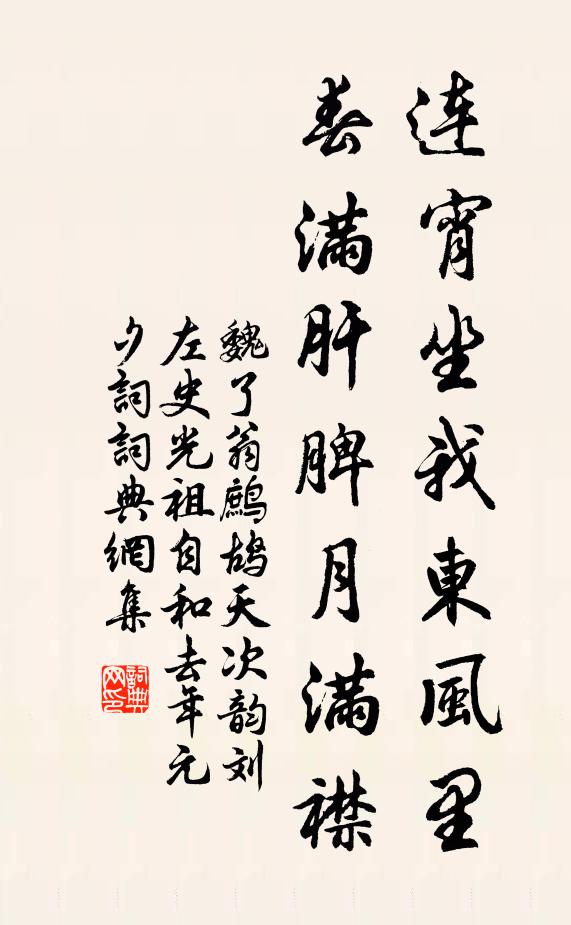 連宵坐我東風里
春滿肝脾月滿襟
魏了翁鷓鴣天次韵刘
左史光祖自和去年元
夕詞詞典網集
詞典
网印